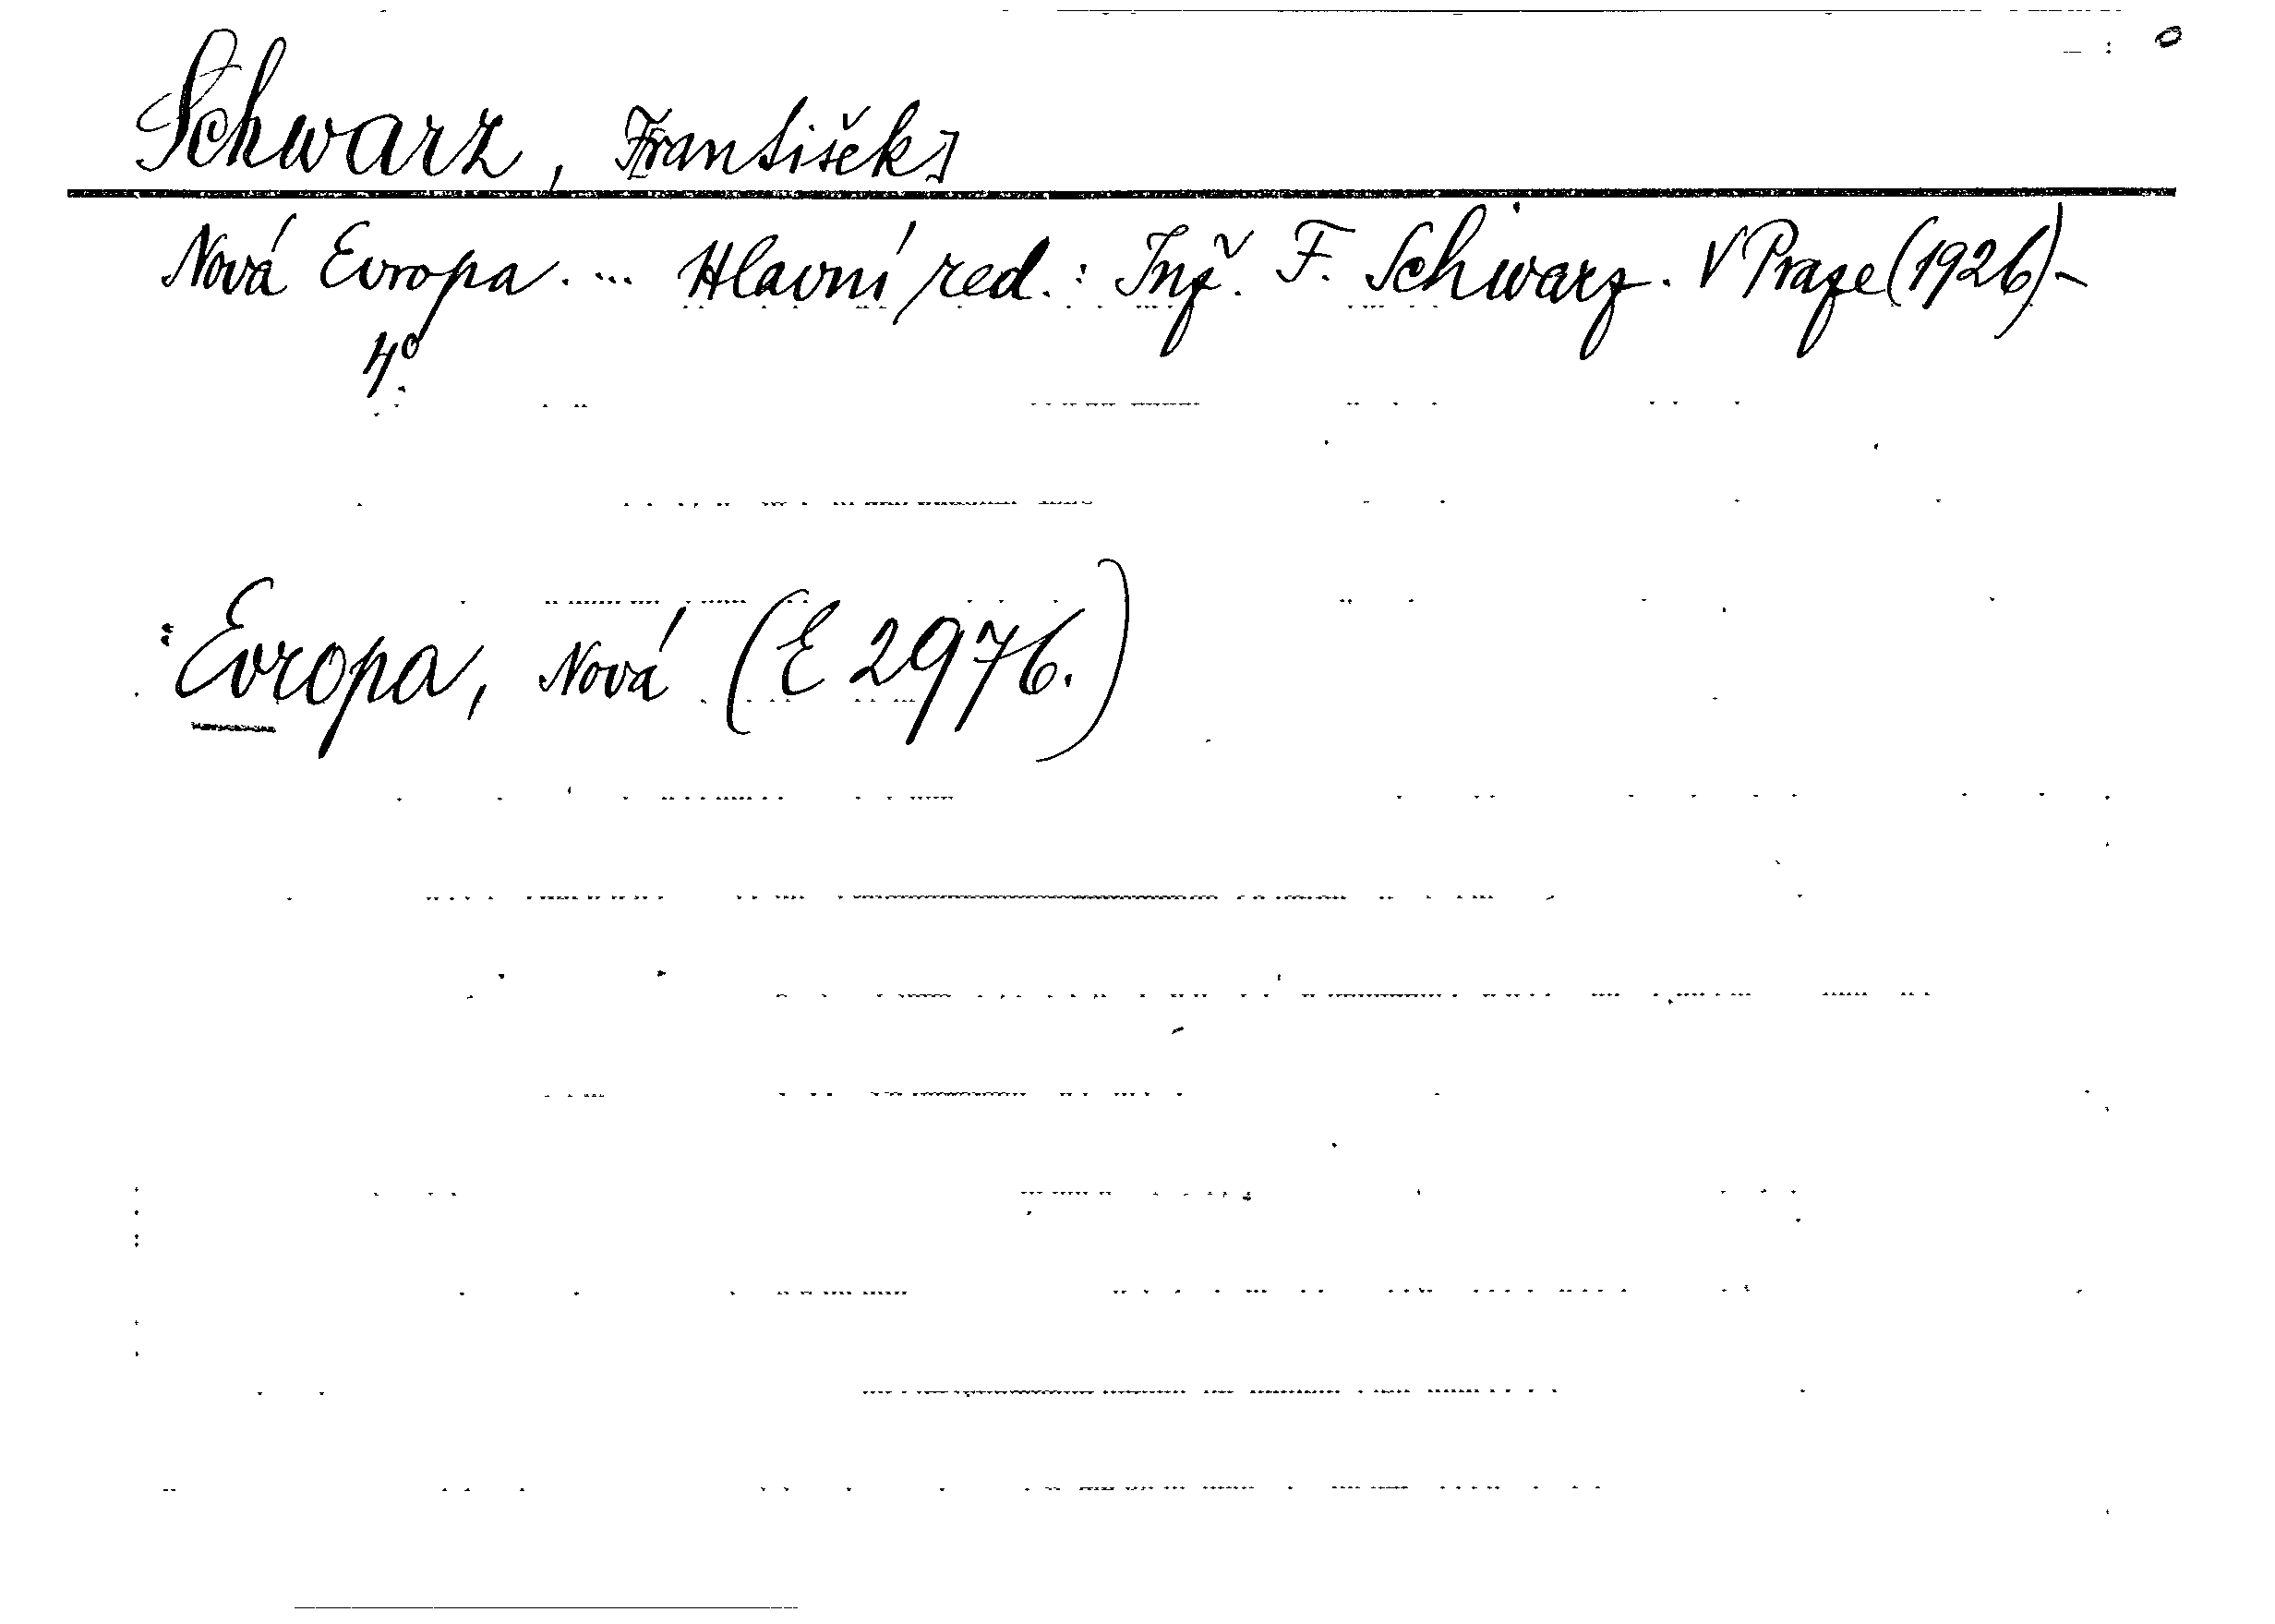 Schwarz, F[rantišek]
Nová Evropa. ... Hlavní red.: Inž. F. Schwarz. V Praze (1926)-
4°.
: Evropa, Nová (E 2976.)